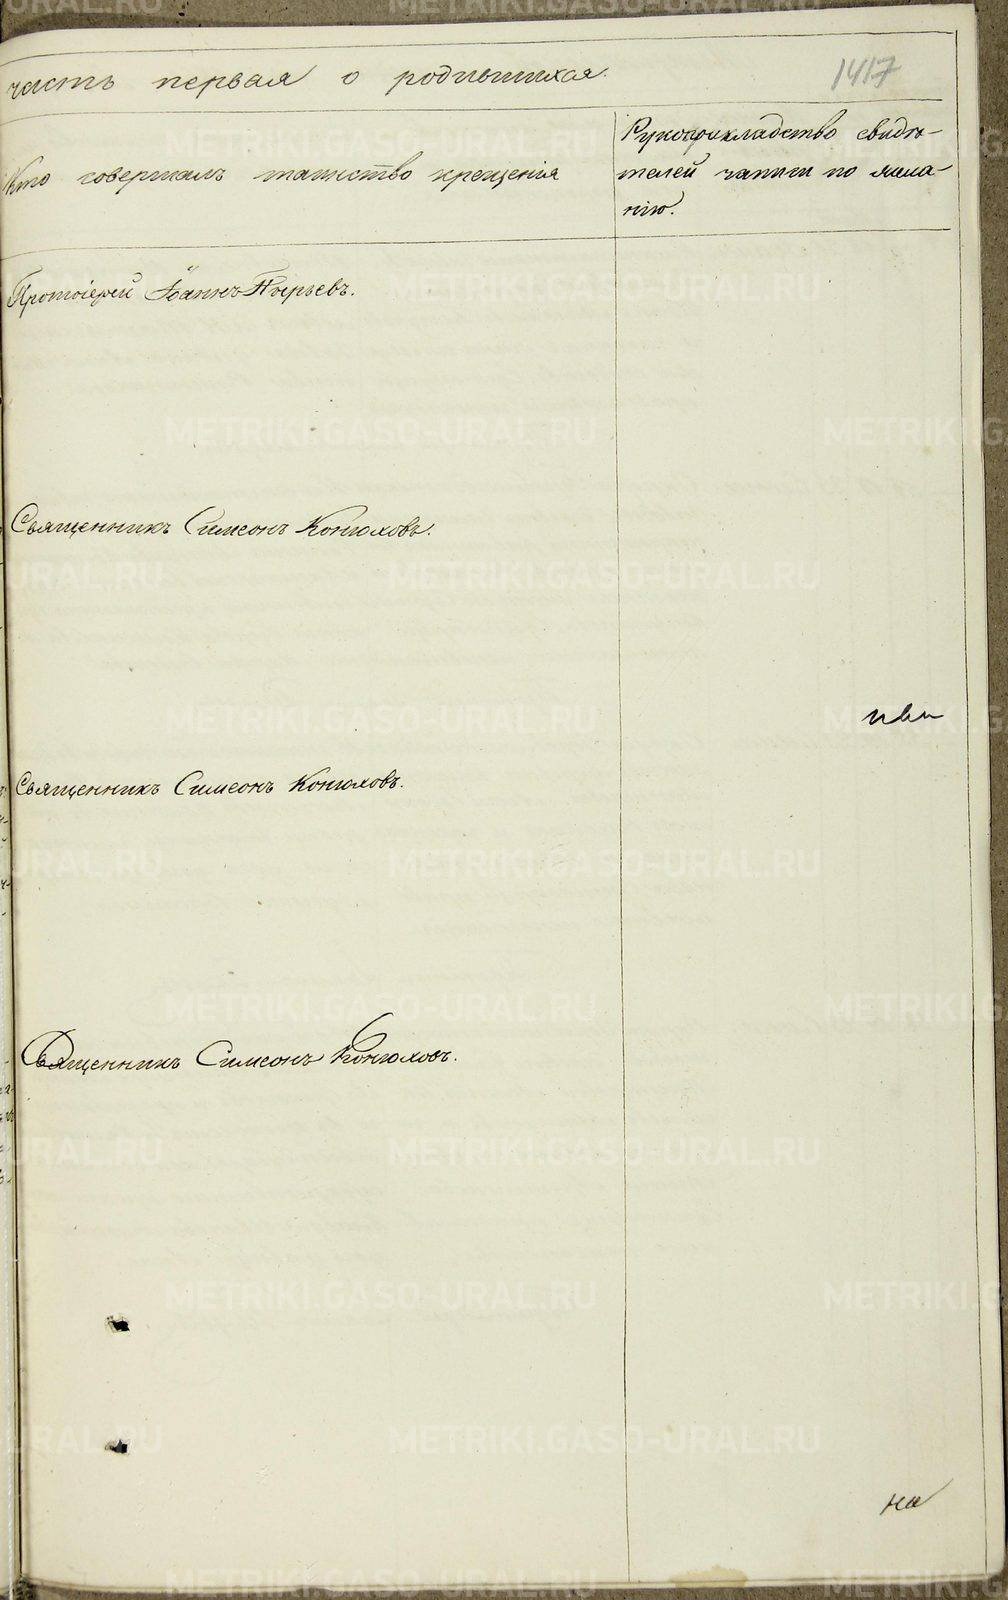 часть первая о родившихся.
1417
Кто совершалъ таинство крещенія
Рукоприкладство свидѣ-
телей записи по жела-
нію.
Протоіерей Іоаннъ Пырьевъ.
Священникъ Симеонъ Конюховъ.
Священникъ Симеонъ Конюховъ.
Священникъ Симеонъ Конюховъ.
на
METRIKI.GASO-URAL.RU